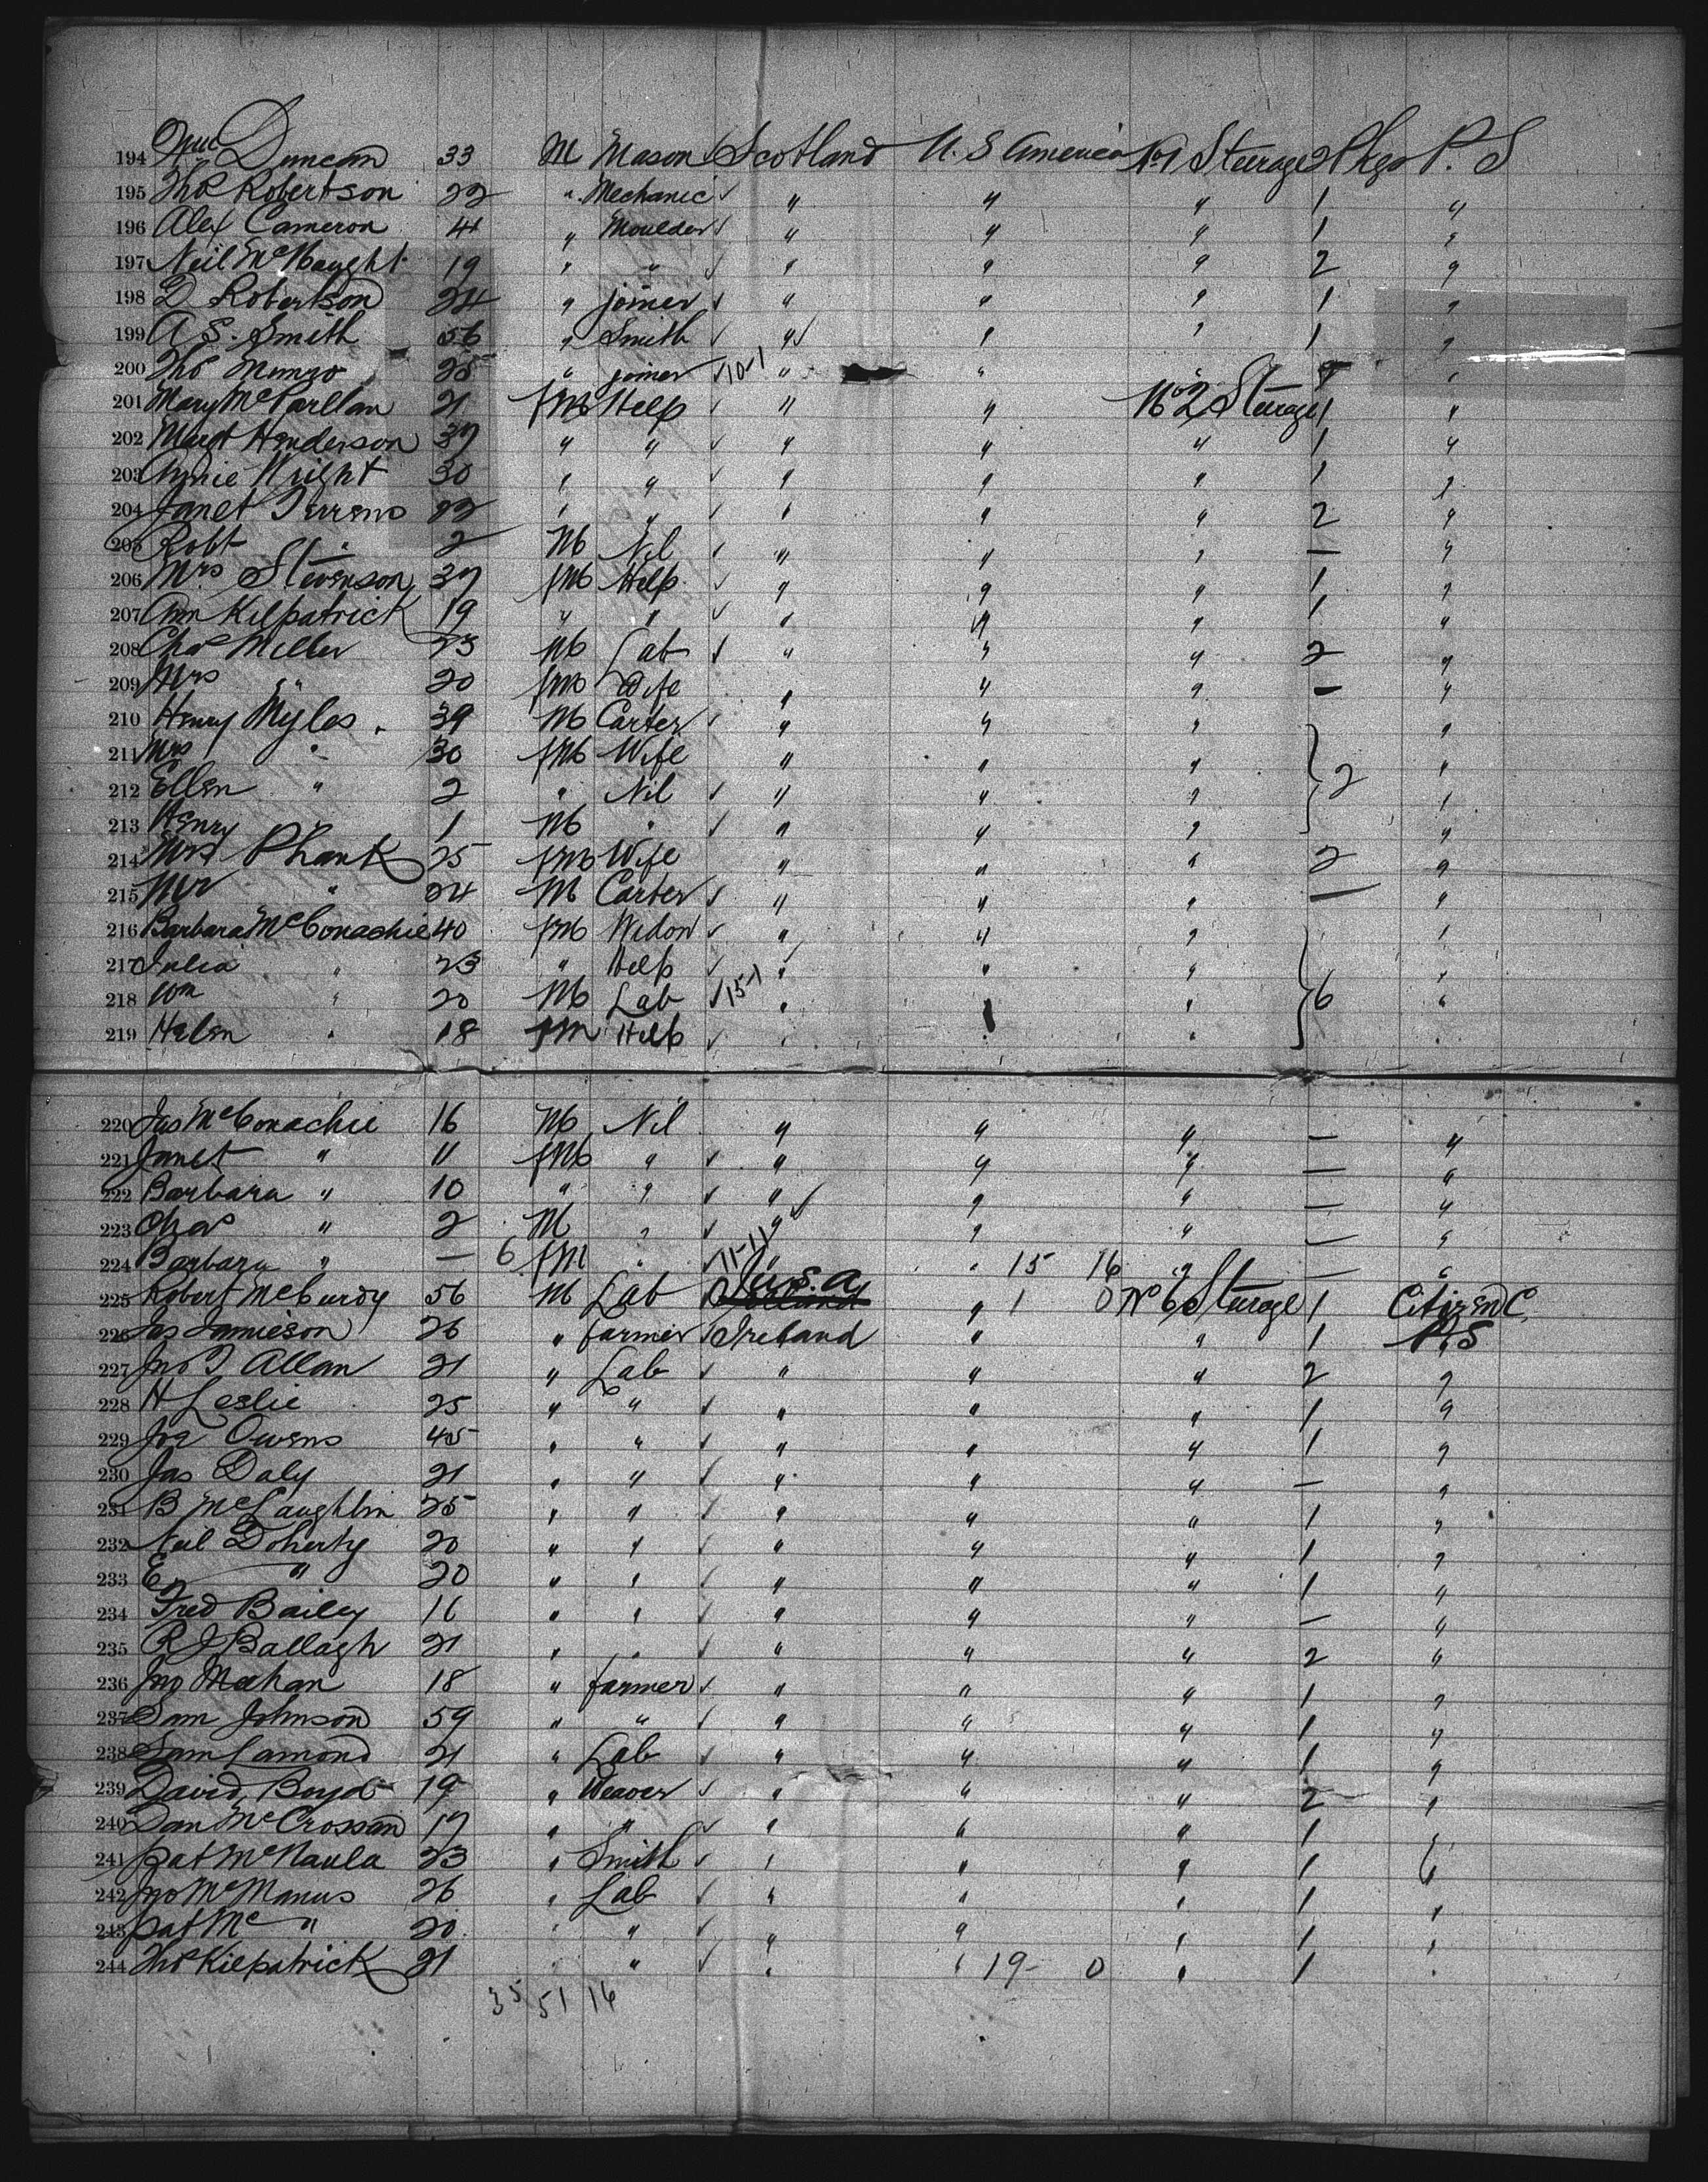 194 Duncan 33 M Mason Scotland U. S America No 1 Steerage 2 Pkgs P. S
195 Thos Robertson 22 " Mechanic " " " 1 "
196 Alex Cameron 4 " Moulder " " " 1 "
197 Neil McNaught 19 " " " " " 2 "
198 D Robertson 24 " joiner " " " 1 "
199 A S. Smith 56 " Smith " " " 1 "
200 Thos Munro 25 " joiner 10-1 " " "
201 Mary McParllan 21 fM Help " " No 2 Steerage 1 "
202 Margt Henderson 37 " " " " " 1 "
203 Annie Wright 30 " " " " " 1 "
204 Janet 22 " " " " " 2 "
205 Robt " 2 M Nil " " " — "
206 Mrs Stevenson 37 fM Help " " " 1 "
207 Ann Kilpatrick 19 " " " " " 1 "
208 Chas Miller 23 M Lab " " " 2 "
209 Mrs " 20 fM Wife " " " — "
210 Henry Myles 39 M Carter " " " "
211 Mrs " 30 fM Wife " " " "
212 Ellen " 2 " Nil " " " 2 "
213 Henry " 1 M " " " " "
214 Mrs Phank 25 fM Wife " " " 2 "
215 Mr " 24 M Carter " " " — "
216 Barbara McConachie 40 fM Widow " " " "
217 Julia " 23 " Help " " " "
218 Wm " 20 M Lab 15-1 " " " 6 "
219 Helen " 18 fM Help " " " "
220 Jas McConachie 16 M Nil " " " — "
221 Janet " 11 fM " " " " — "
222 Barbara " 10 " " " " " — "
223 Chas " 2 M " " " " — "
224 Barbara " — 6 fM " 11-11 " " 15 16 " — "
225 Robert McCurdy 56 M Lab U.S.A " 1 0 No 6 Steerage 1 Citizen C.
226 Jas Jamieson 26 " farmer Ireland " " 1 P. S
227 Jno T Allan 21 " Lab " " " 2 "
228 H Leslie 25 " " " " " 1 "
229 Owens 45 " " " " " 1 "
230 Jas Daly 21 " " " " " — "
231 B McLaughlin 25 " " " " " 1 "
232 Neil Doherty 20 " " " " " 1 "
233 E " 20 " " " " " 1 "
234 Fred Bailey 16 " " " " " — "
235 R J Ballagh 21 " " " " " 2 "
236 Jno Meehan 18 " farmer " " " 1 "
237 Sam Johnson 59 " " " " " 1 "
238 Sam Lamond 21 " Lab " " " 1 "
239 David Boyd 19 " Weaver " " " 2 "
240 Dan McCrossan 17 " " " " " 1 "
241 Pat McNaula 23 " Smith " " " 1 "
242 Jno McManus 26 " Lab " " " 1 "
243 Pat Mc " 20 " " " " " 1 "
244 Thos Kilpatrick 21 " " " " 19- 0 " 1 "
35 51 16